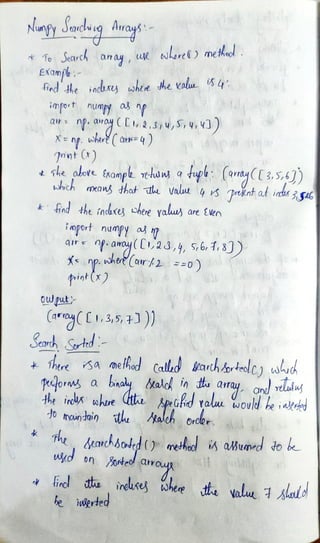 Numpy Searching Arrays :-
* To Search array, use where() method.
Example :-
Find the indexes where the value is 4:
import numpy as np
arr = np.array([1, 2, 3, 4, 5, 4, 4])
x = np.where(arr=4)
print(x)
* The above Example returns a tuple: (array([3,5,6])
which means that the value 4 is present at index 3,5&6
* find the indexes where values are Even
import numpy as np
arr = np.array([1,2,3,4,5,6,7,8])
x = np.where(arr%2 ==0)
print(x)
output:-
(array([1,3,5,7]))
Search Sorted :-
* There is a method called searchsorted() which
performs a binary search in the array, and returns
the index where the specified value would be inserted
to maintain the search order.
* The searchsorted() method is assumed to be
used on Sorted arrays
* Find the indexes where the value 7 should
be inserted